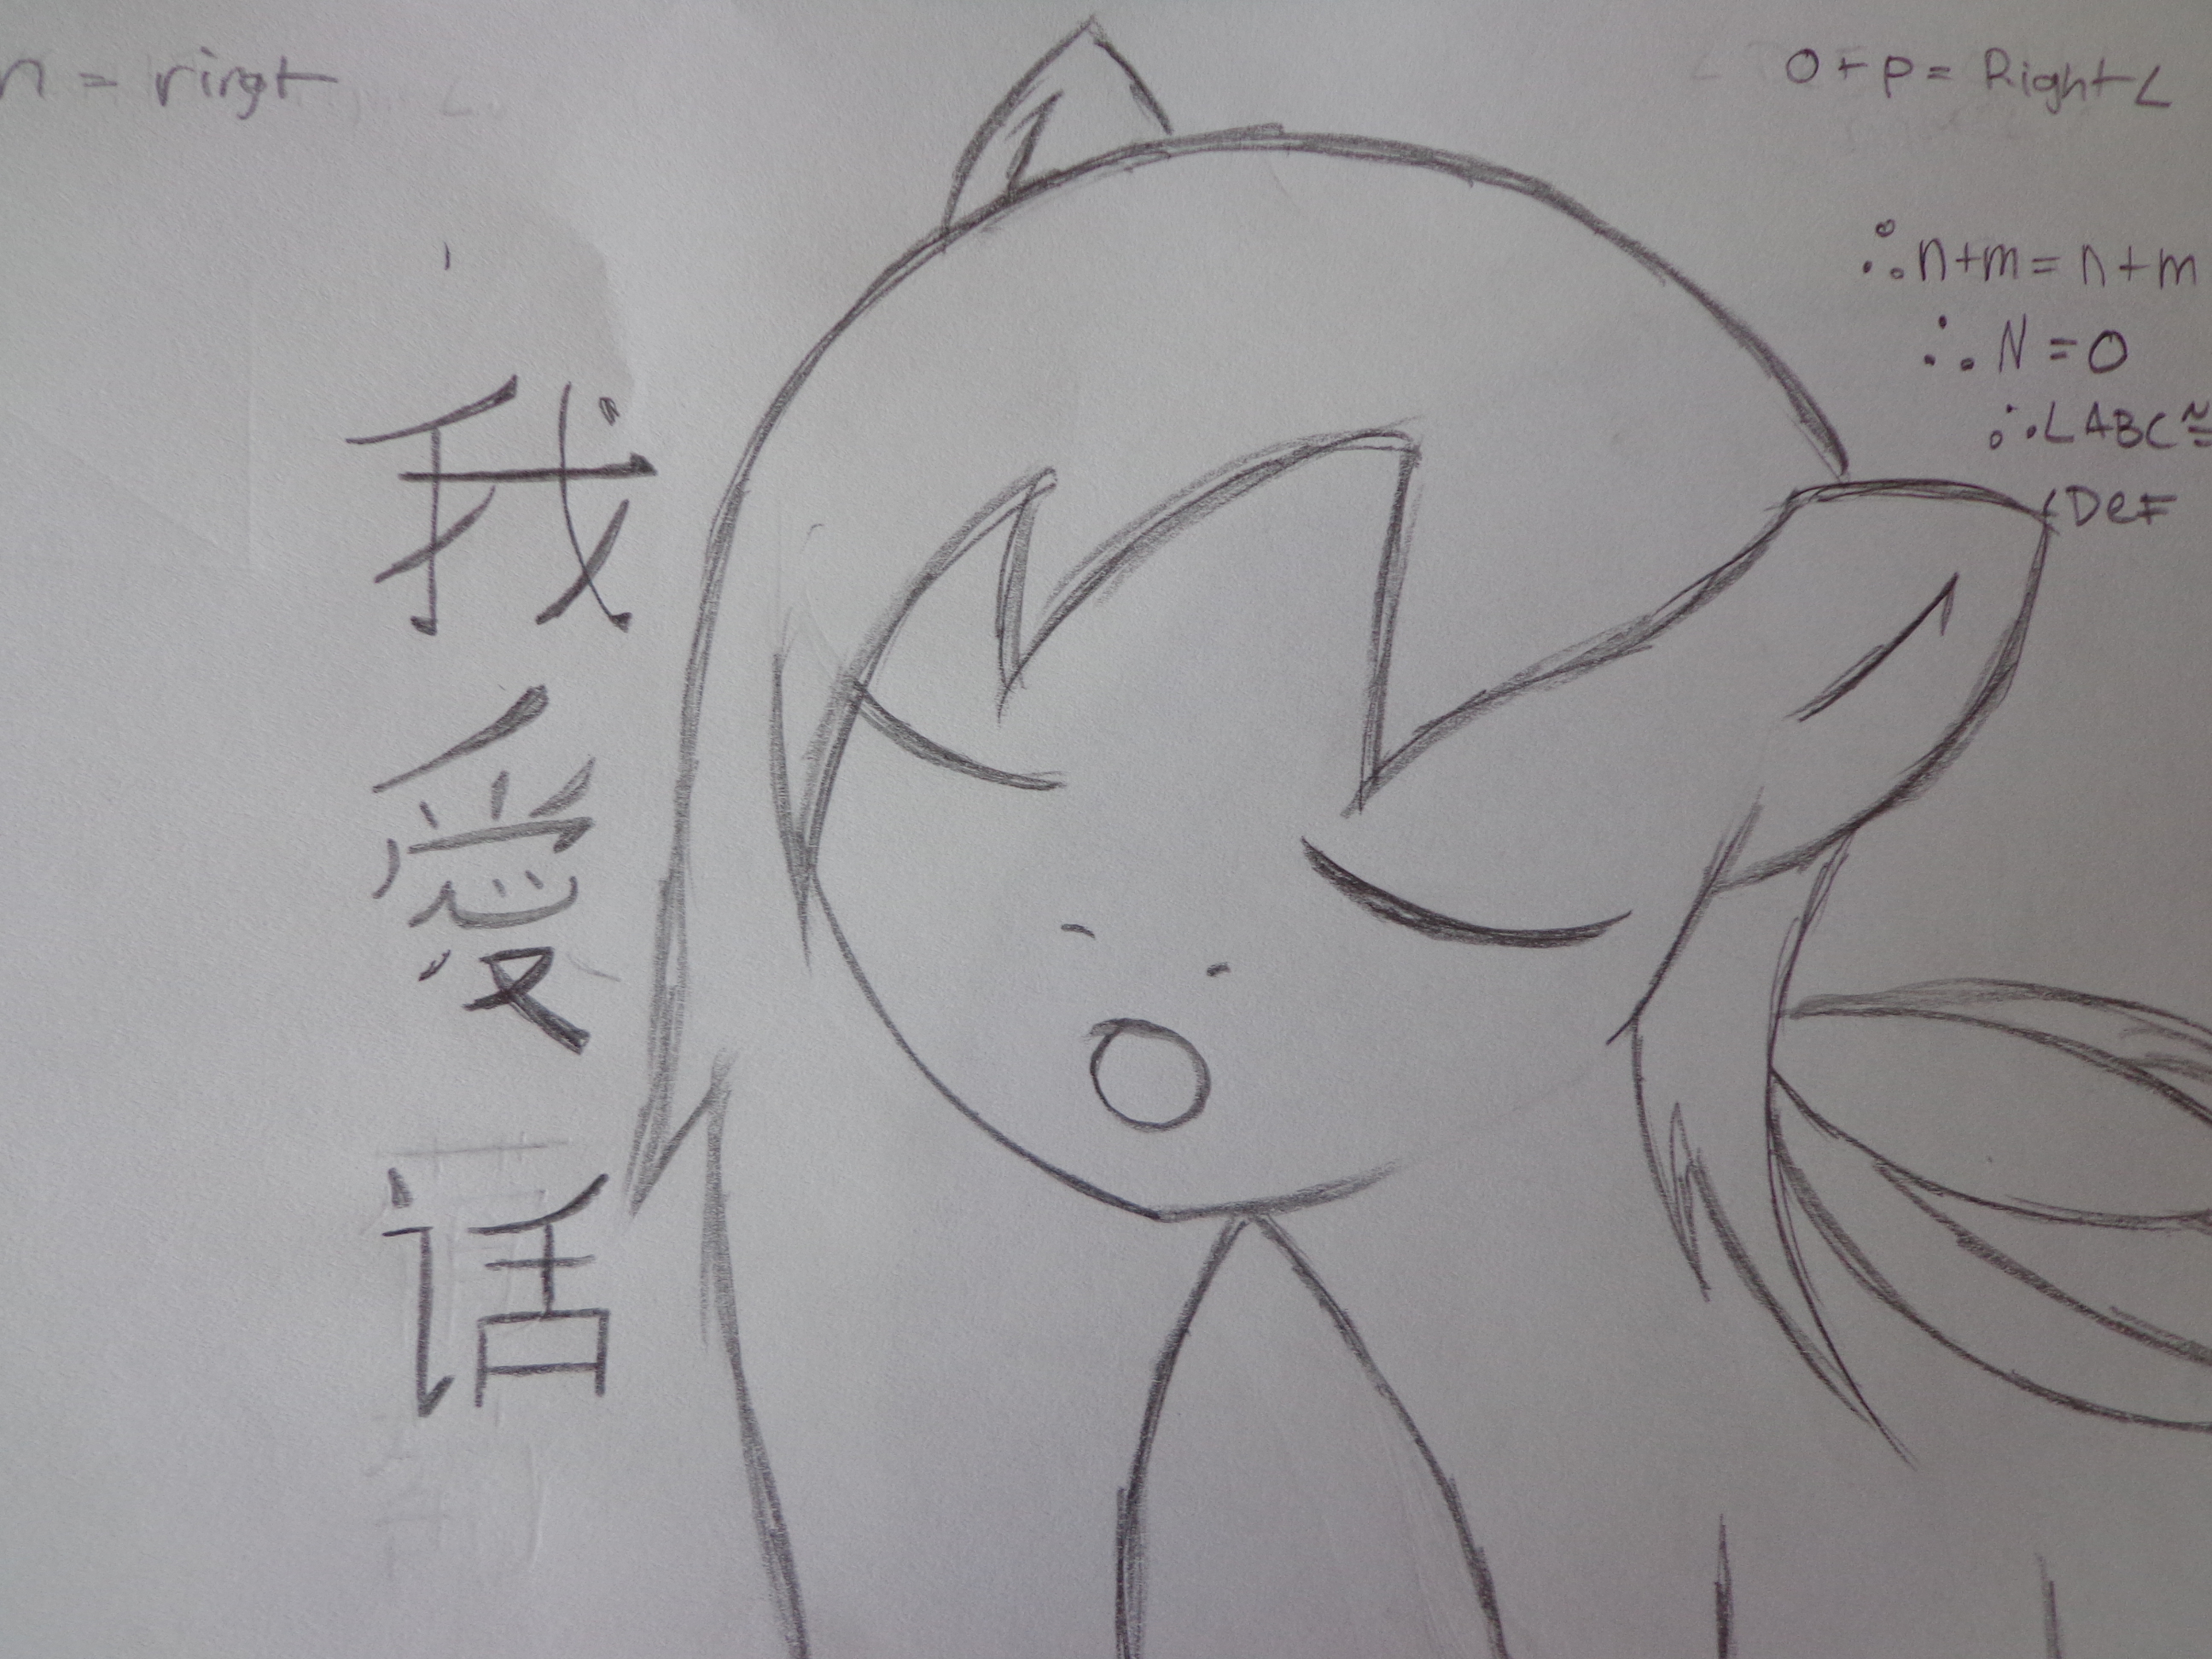 n = ringt
o + p = Right∠
∴ n+m = n+m
∴ N = O
∴ ∠ABC ≅
∠DeF
我
愛
话